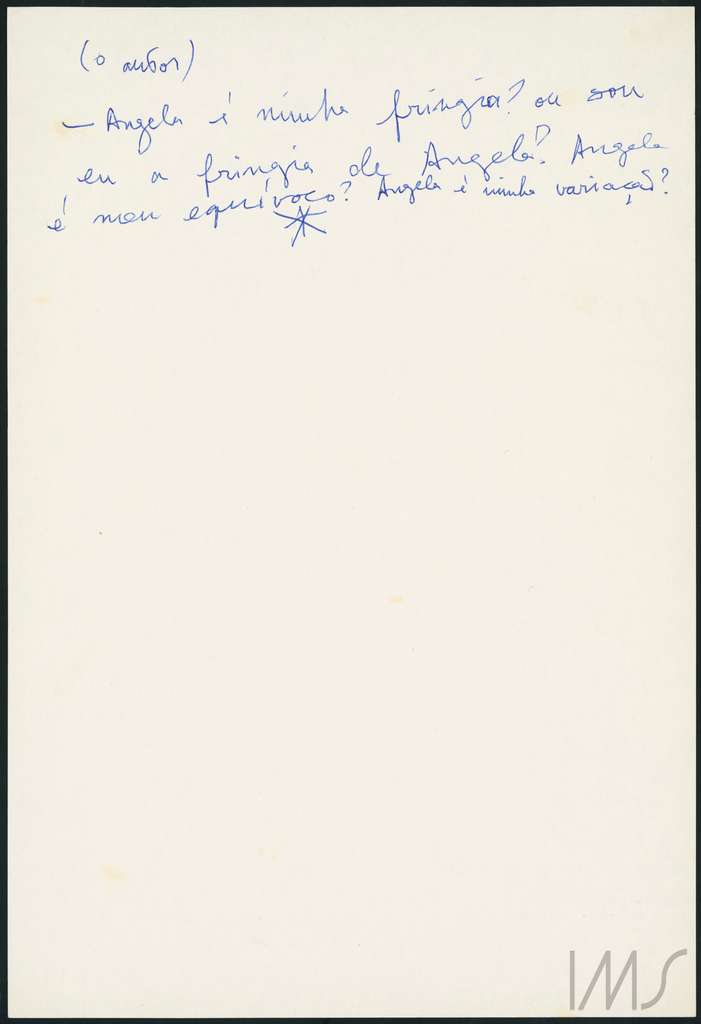 (o autor)
— Angela é minha fringia? ou sou
eu a fringia de Angela? Angela
é meu equívoco? Angela é minha variação?
IMS